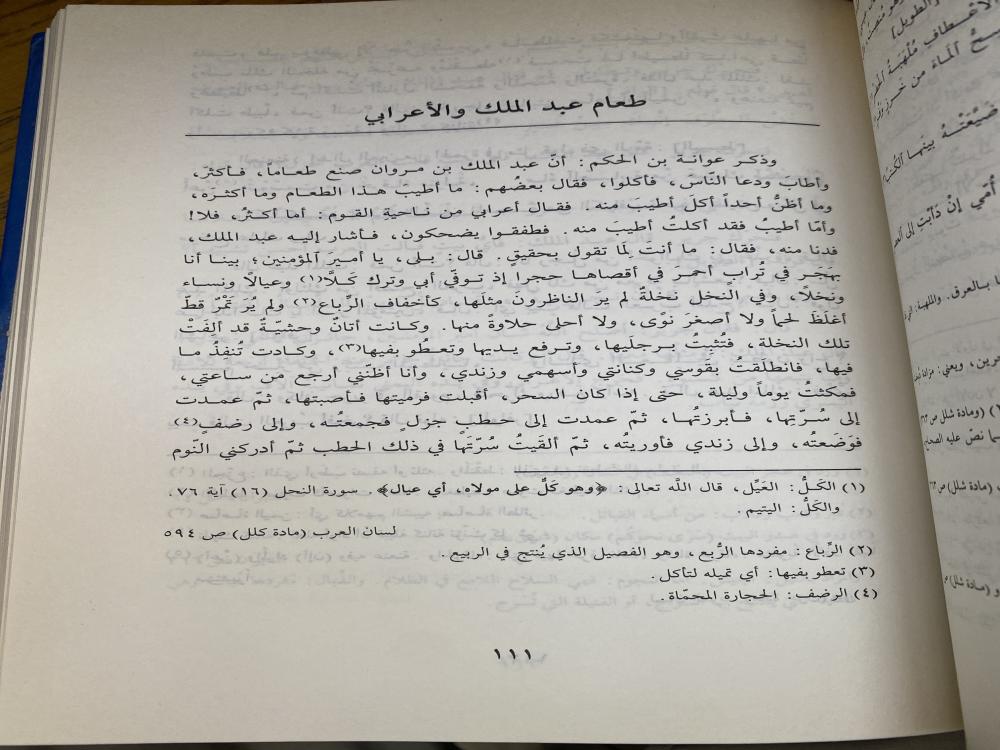 طعام عبد الملك والأعرابي
وذكر عوانة بن الحكم: أنّ عبد الملك بن مروان صنع طعاماً، فـأكثرَ،
وأطابَ ودعا النّاسَ، فأكلوا، فقال بعضُهم: ما أطيبَ هـذا الطعـام ومـا أكثـرَه،
وما أظنُّ أحداً أكلَ أطيبَ منه. فقـال أعرابي من ناحيةِ القـوم: أما أكثـرُ، فلا!
وأمّا أطيبُ فقد أكلتُ أطيبَ منه. فطفقـوا يضحكـون، فـأشار إليـه عبد الملك،
فدنا منه، فقال: ما أنتَ لِمَا تقول بحقيقٍ. قال: بـلى، يا أميرَ المؤمنين؛ بينـا أنا
بِهَجَرَ في تُرابٍ أحمرَ في أقصاها حجرا إذ تـوفّي أبي وترك كَـلًّا(١) وعيالاً ونساء
ونخلًا، وفي النخل نخلةٌ لم يرَ الناظرونَ مثلَها، كأخفاف الرِّباع(٢) ولم يُرَ تَمْرٌ قطّ
أغلَظَ لحماً ولا أصغرَ نوًى، ولا أحلى حلاوةً منهـا. وكـانت أتانٌ وحشيّـةٌ قد ألِفَتْ
تلك النخلة، فتُثبِتُ بـرجلَيها، وتـرفع يـديها وتعـطُو بفيها(٣)، وكـادت تُنفِذُ مـا
فيها، فانطلَقتُ بقَوسي وكنانتي وأسهمي وزندي، وأنا أظنّني أرجع من ساعتي،
فمكثتُ يوماً وليلة، حتى إذا كان السحر، أقبلت فرميتها فأصبتها، ثمّ عمـدت
إلى سُـرّتِها، فـأبرزتُهـا، ثمّ عمدت إلى حـطب جزلٍ فـجمعتُـه، وإلى رضفٍ(٤)
فوَضَعتُه، وإلى زندي فأوريتُه، ثمّ ألقَيتُ سُرّتَها في ذلك الحطب ثمّ أدركني النّوم
(١) الكَـلُّ: العَيِّل، قال اللَّه تعالى: ﴿وهو كَلٌّ على مولاه، أي عيال﴾. سورة النحل (١٦) آية ٧٦.
والكَلُّ: اليتيم.
لسان العرب (مادة كلل) ص ٥٩٤
(٢) الرِّباع: مفردها الرُّبع، وهو الفصيل الذي يُنتج في الربيع.
(٣) تعطو بفيها: أي تميله لتأكل.
(٤) الرضف: الحجارة المحمّاة.
١١١